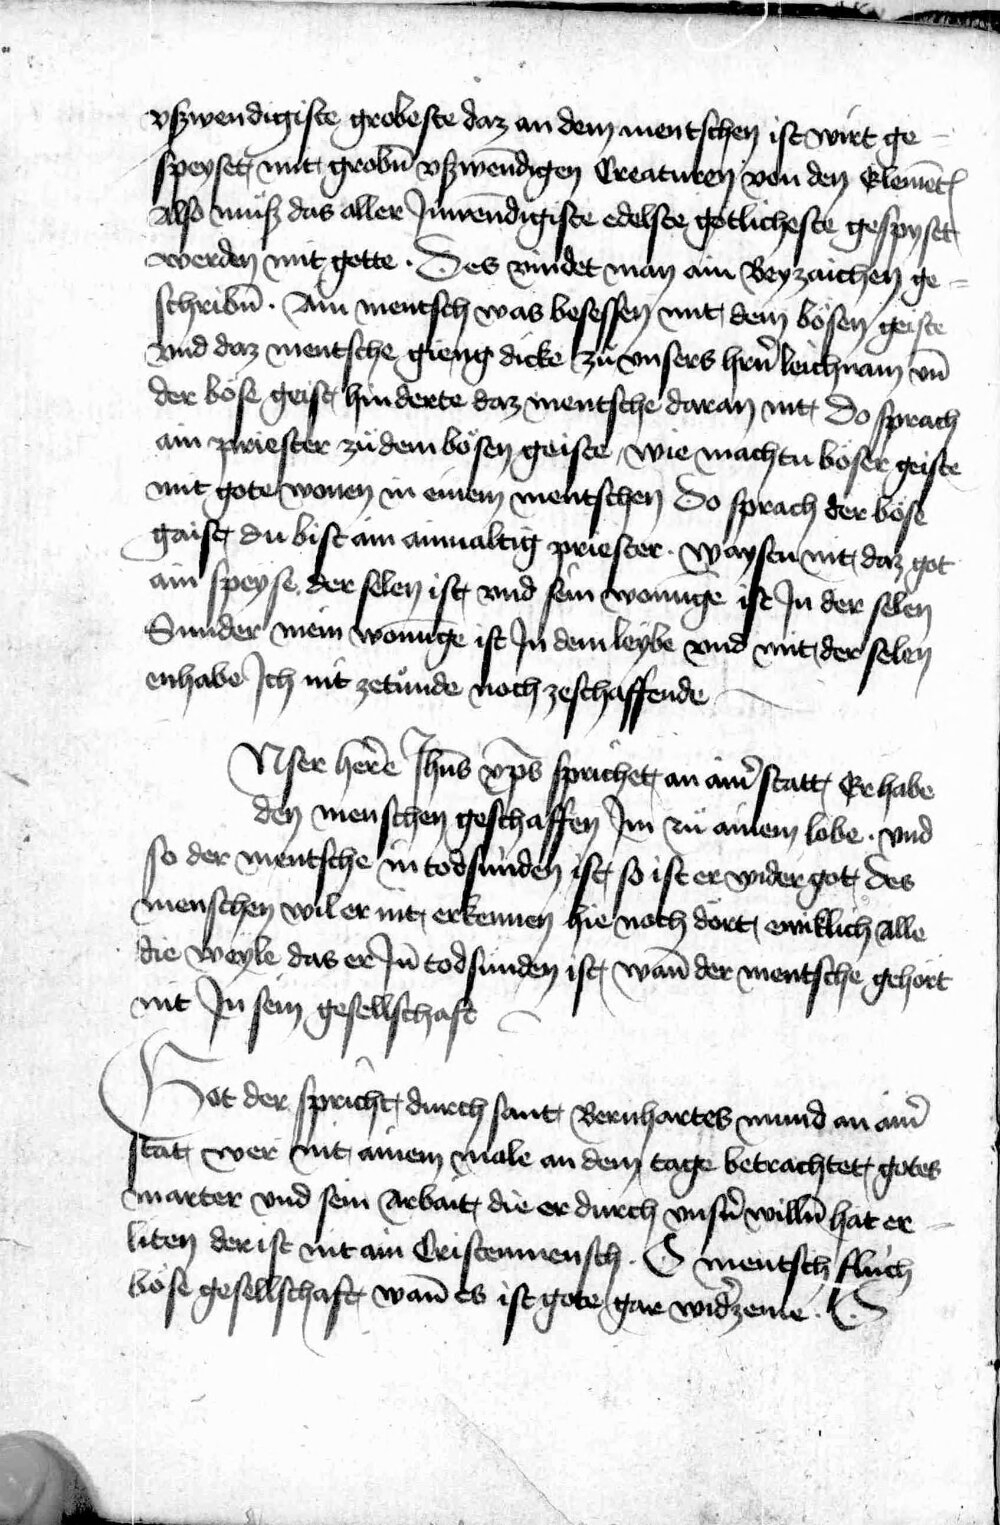 vszwendigiste grobeste daz an dem mentschen ist wirt ge-
speyset mit grobn̄ vszwēndigen Creaturen von den Elemēt
Also muͦsz das aller Jnwēndigiste edelste goͤtlicheste gespyset
werden mit gotte · Des vindet man ain Beyzaichen ge-
schribn̄ · Ain mentsch was besessen mit dem boͤsen geiste
vnd daz mentsche gieng dicke zuͦ vnsers hrn̄ leichnam vn̄
der boͤse geist hinderte daz mentsche daran nit Do sprach
ain priester zuͦ dem boͤsen geiste wie machtu boͤser geiste
mit gote wonen in einem mentschen Do sprach der boͤse
gaist du bist ain ainualtig priester · waystu nit daz got
ain speyse der selen ist vnd sein wonunge ist Jn der selen
Sunder mein wonunge ist Jn dem leybe vnd mit der selen
enhabe Jch nit zetuͦnde noch zeschaffende
Nser herre Jhus xp̄s sprichet an aim̄ statt Er habe
den menschen geschaffen Jm zuͦ ainem lobe · vnd
so der mentsche in todsuͤnden ist so ist er wider got Des
menschen wil er nit erkennen hie noch dort ewiklich Alle
die weyle das er Jn̄ todsuͤnden ist wan̄ der mentsche gehoͤrt
nit Jn sein gesellschaft
Got der spricht durch sant Bernhartes mund an aim̄
stat wer nit ainem male an dem tage betrachtet gotes
marter vnd sein Arbait die er durch vnsn̄ willn̄ hat er-
liten der ist nit ain Cristenmensch · O mentsch fluͤch
boͤse gesellschaft wan̄ es ist gote gar wid̓zeme · O